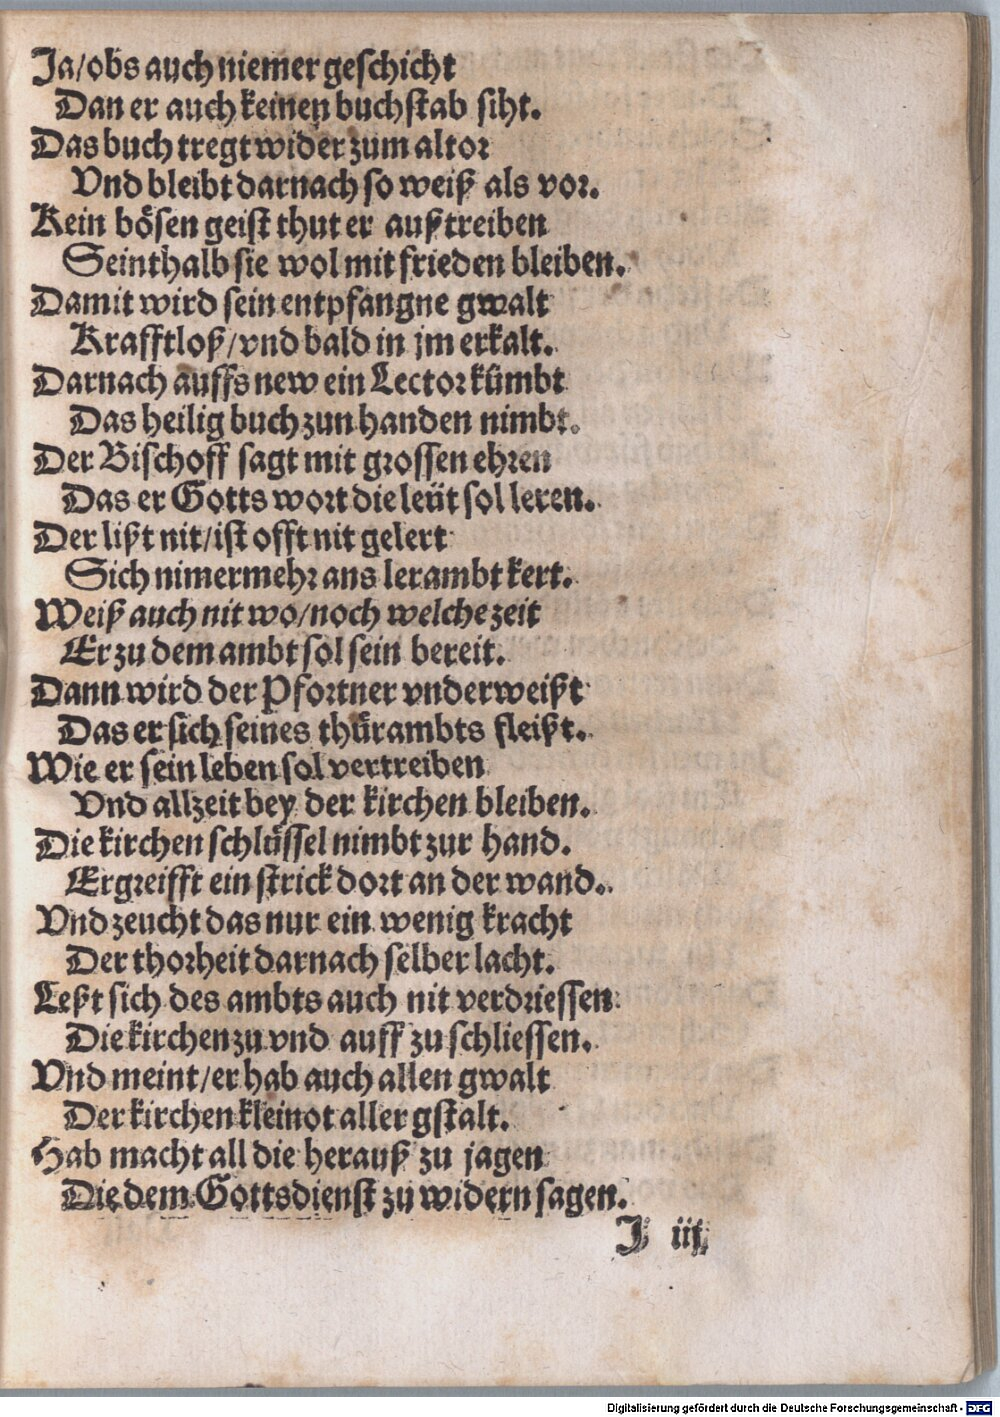 Ja/obs auch niemer geschicht
Dan er auch keinen buchstab siht.
Das buch tregt wider zum altor
Vnd bleibt darnach so weiß als vor.
Kein bösen geist thut er außtreiben
Seinthalb sie wol mit frieden bleiben.
Damit wird sein entpfangne gwalt
Krafftloß/vnd bald in jm erkalt.
Darnach auffs new ein Lector kümbt
Das heilig buch zun handen nimbt.
Der Bischoff sagt mit grossen ehren
Das er Gotts wort die leüt sol leren.
Der lißt nit/ist offt nit gelert
Sich nimermehr ans lerambt kert.
Weiß auch nit wo/noch welche zeit
Er zu dem ambt sol sein bereit.
Dann wird der Pfortner vnderweißt
Das er sich seines thürambts fleißt.
Wie er sein leben sol vertreiben
Vnd allzeit bey der kirchen bleiben.
Die kirchen schlüssel nimbt zur hand.
Ergreifft ein strick dort an der wand.
Vnd zeucht das nur ein wenig kracht
Der thorheit darnach selber lacht.
Leßt sich des ambts auch nit verdriessen
Die kirchen zu vnd auff zu schliessen.
Vnd meint/er hab auch allen gwalt
Der kirchen kleinot aller gstalt.
Hab macht all die herauß zu jagen
Die dem Gottsdienst zu widern sagen.
J iij
Digitalisierung gefördert durch die Deutsche Forschungsgemeinschaft - DFG